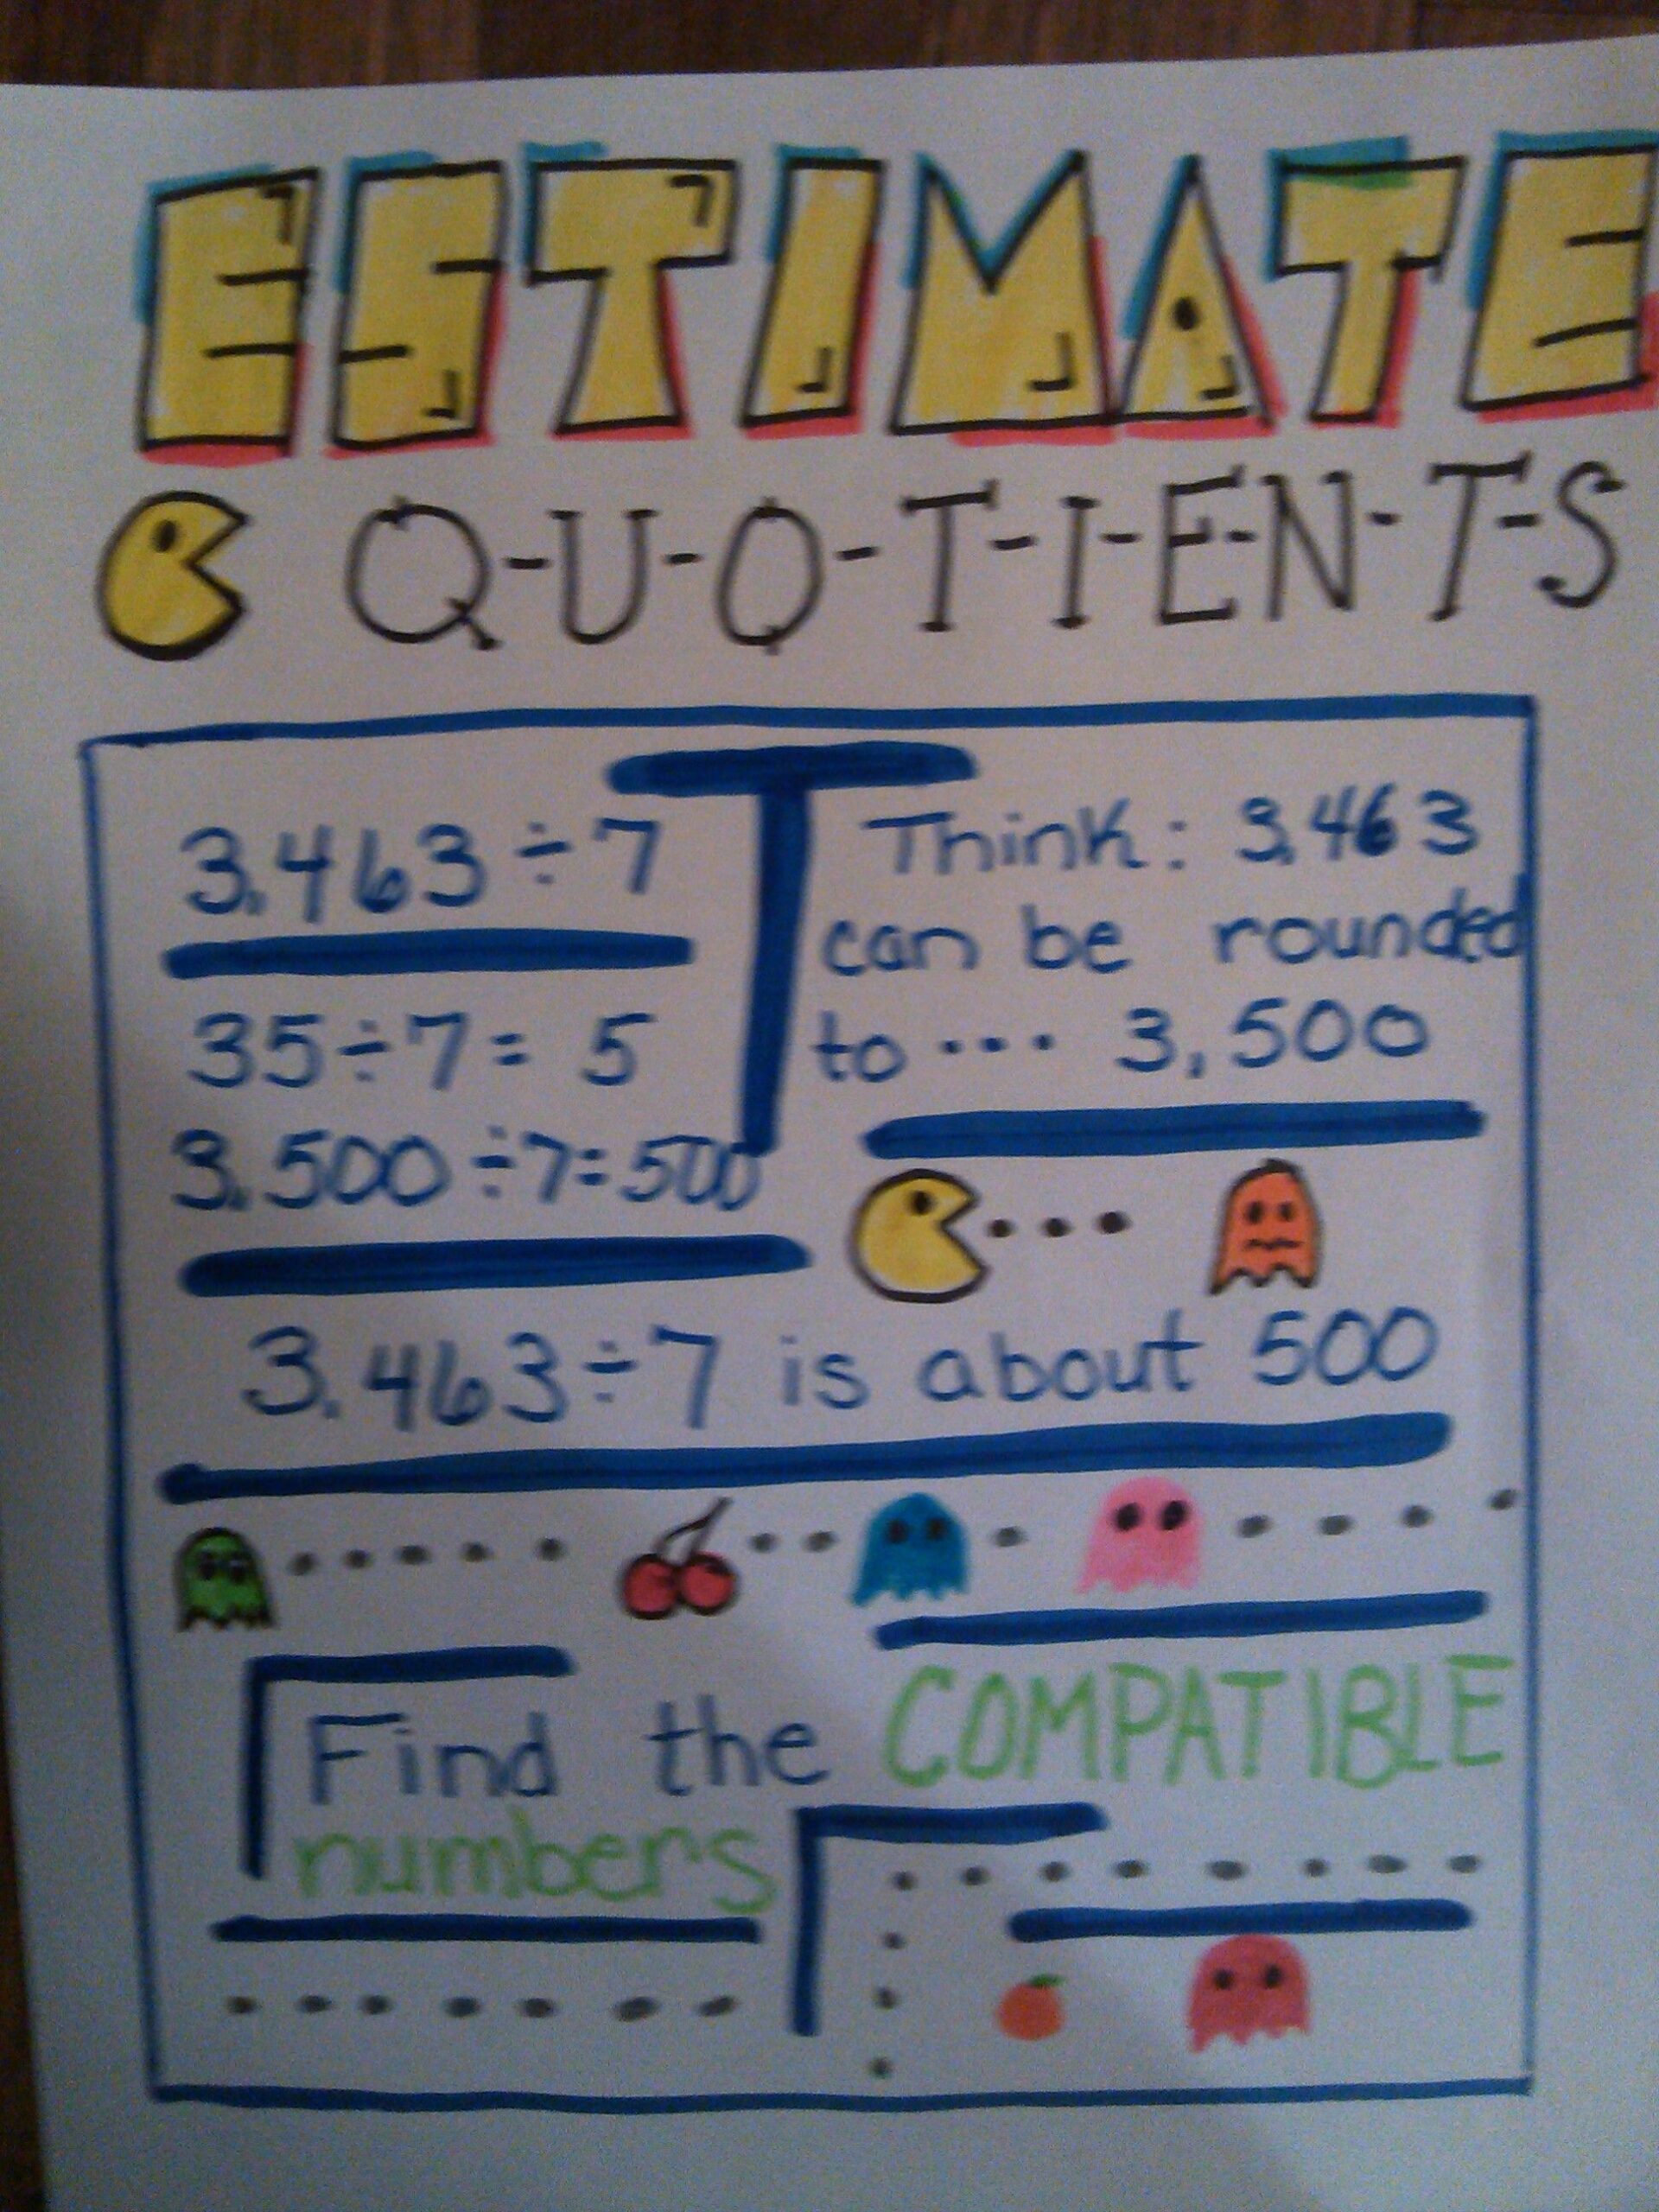 ESTIMATE
Q-U-O-T-I-E-N-T-S
3,463 ÷ 7
35 ÷ 7 = 5
3,500 ÷ 7 = 500
Think: 3,463
can be rounded
to ... 3,500
3,463 ÷ 7 is about 500
Find the COMPATIBLE
numbers